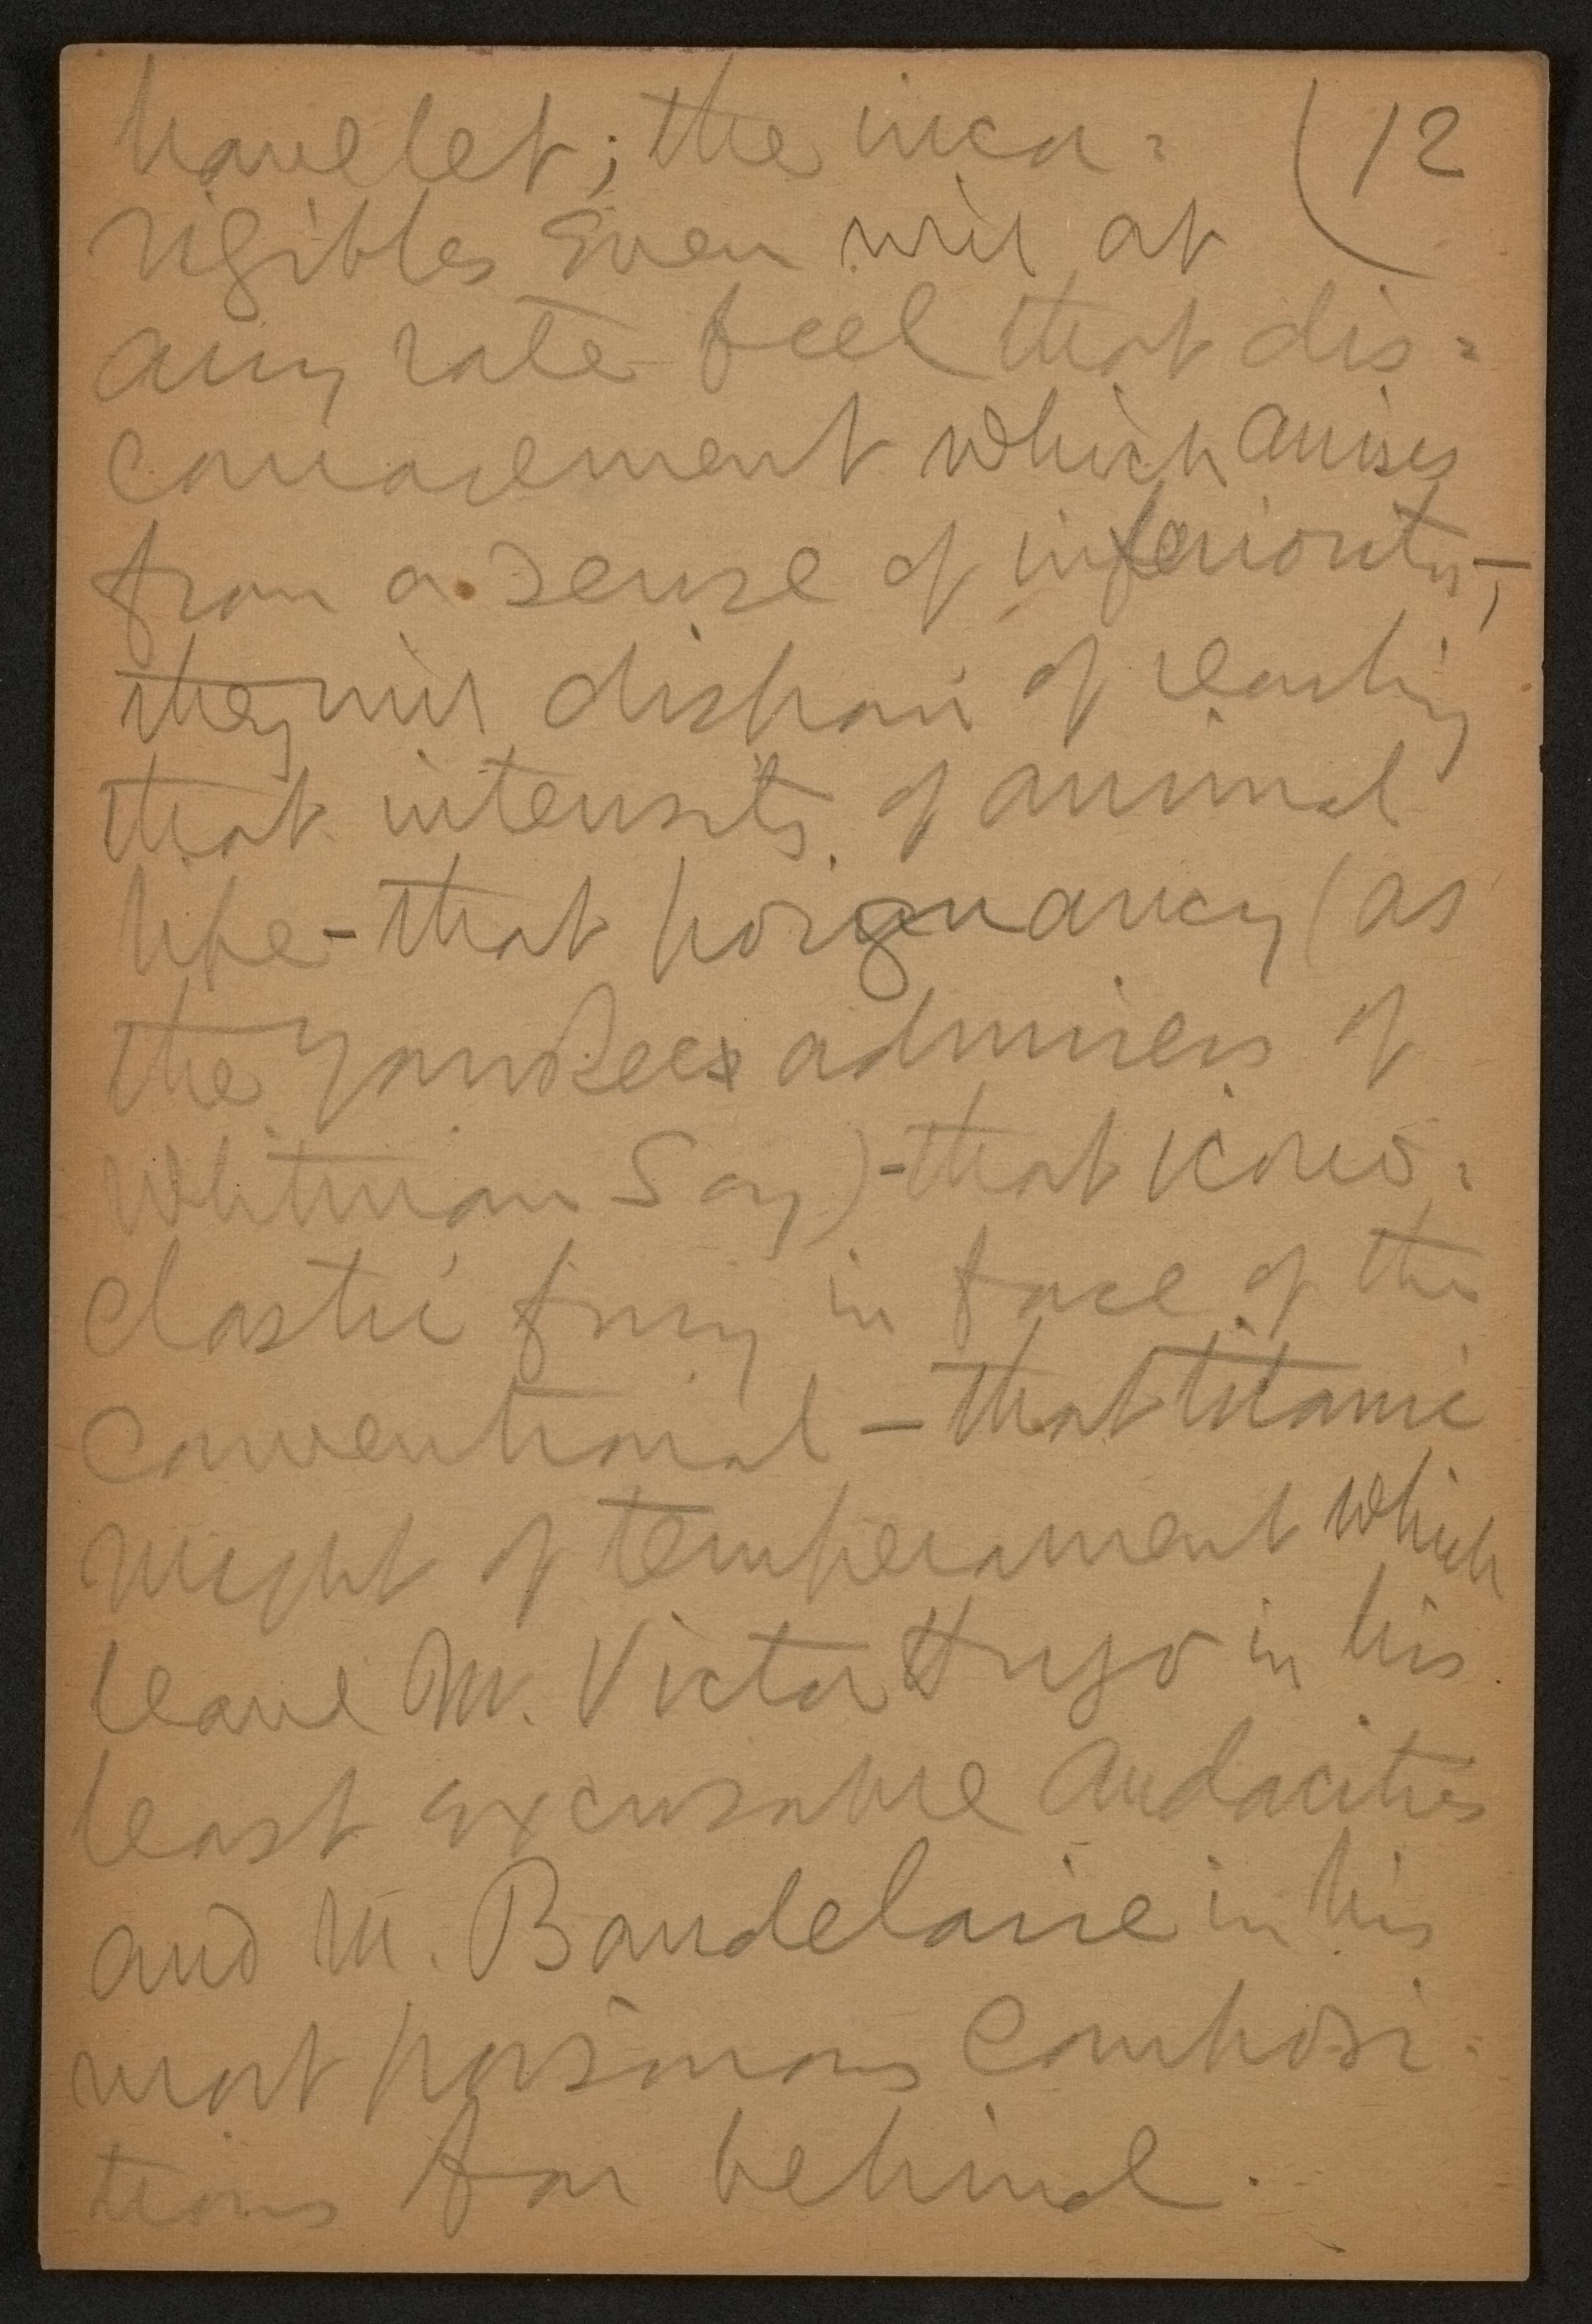 havelet; the incor= (12
rigibles even will at
any rate feel that dis=
couragement which arises
from a sense of inferiority,—
they will dispair of reaching
that intensity of animal
life-that poignancy (as
the Yankees admirers of
Whitman say)-that icono=
clastic fury in face of the
conventional — that titanic
might of temperament which
leave M. Victor Hugo in his
least excusable audacities
and M. Baudelaire in his
most poisonous composi-
tions far behind.